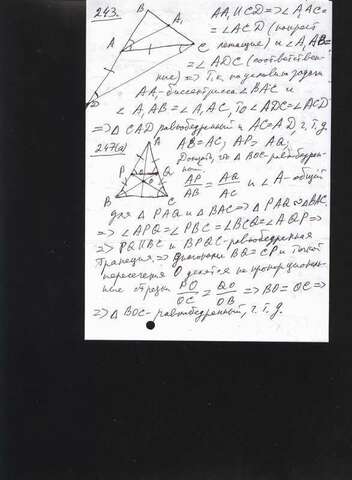 243.
B
A₁
A
C
D
AA₁ || CD => ∠A₁AC =
= ∠ACD (накрест
лежащие) и ∠A₁AB =
= ∠ADC (соответствен-
ные) => Т.к. по условию задачи
AA₁ - биссектриса ∠BAC и
∠A₁AB = ∠A₁AC, то ∠ADC = ∠ACD
=> △CAD равнобедренный и AC = AD ч.т.д.
247(а)
A
P
Q
O
B
C
AB = AC; AP = AQ;
что △BOC - равнобедрен-
ный.
AP/AB = AQ/AC и ∠A - общий
для △PAQ и △BAC => △PAQ ∾ △BAC
=> ∠APQ = ∠PBC = ∠BCQ = ∠AQP =>
=> PQ || BC и BPQC - равнобедренная
трапеция => диагонали BQ = CP и точкой
пересечения O делятся на пропорциональ-
ные отрезки PO/OC = QO/OB => BO = OC =>
=> △BOC - равнобедренный, ч.т.д.